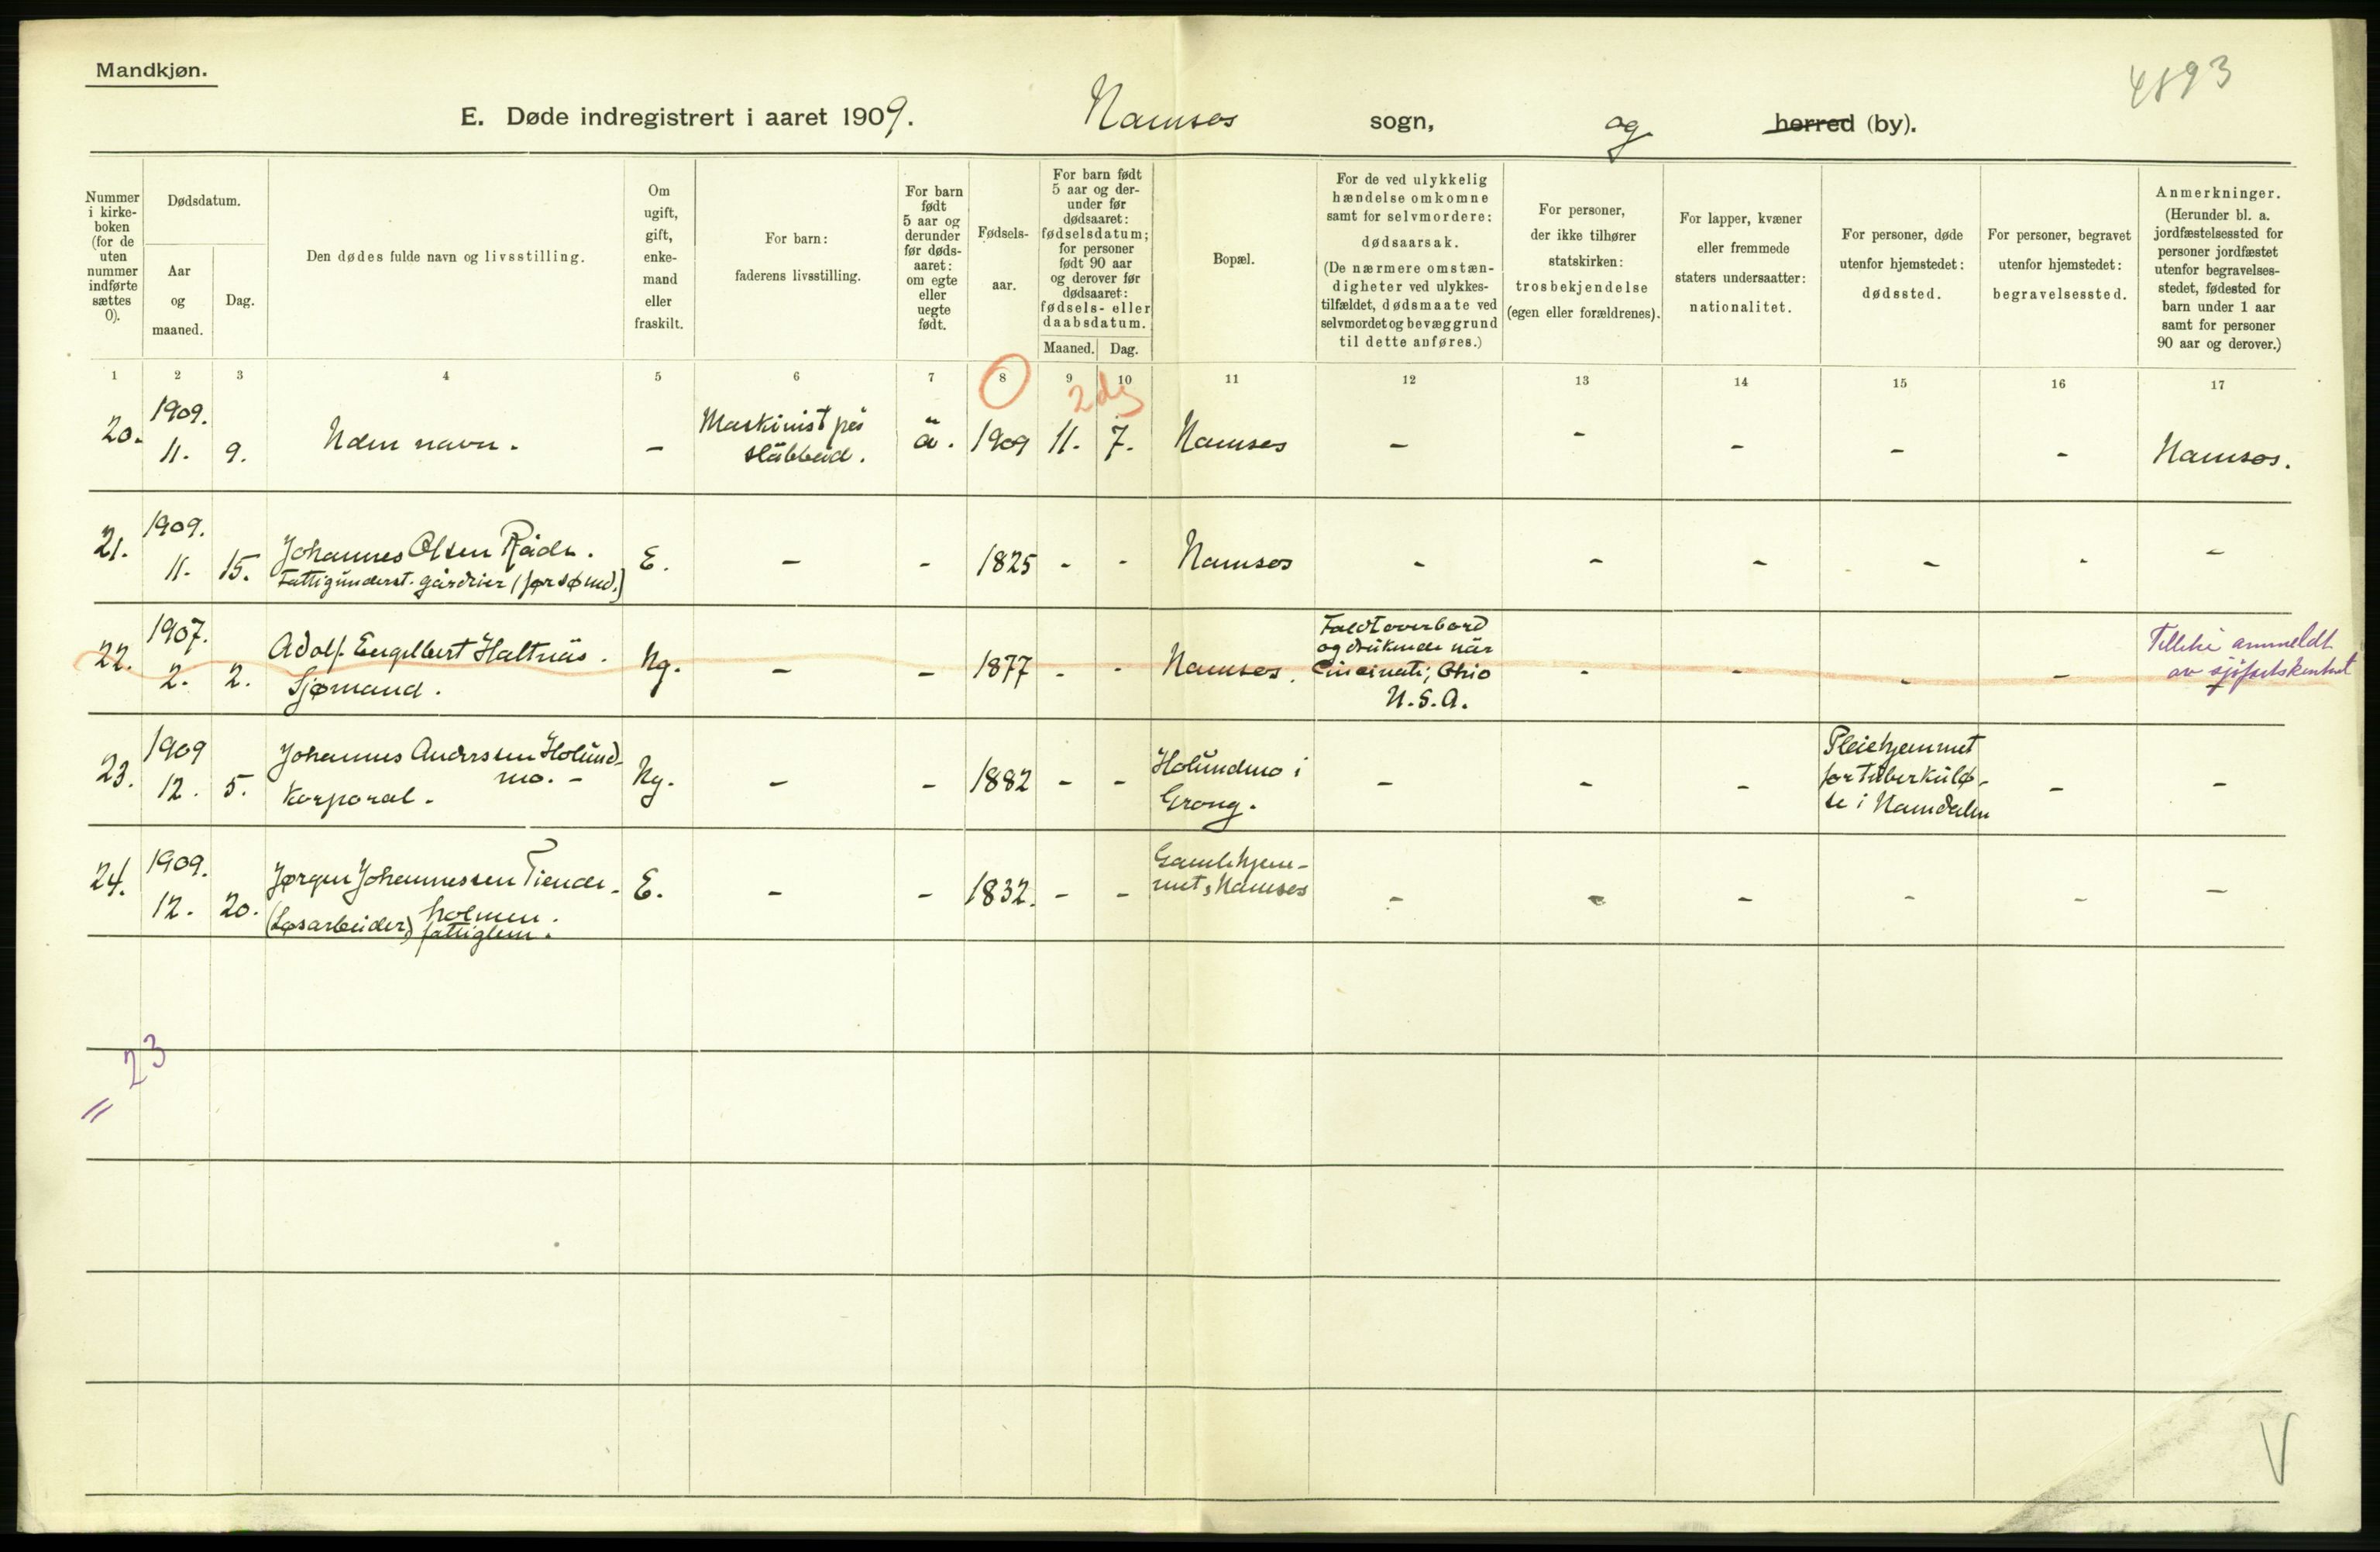 Mandkjøn.
4893
E. Døde indregistrert i aaret 1909. Namsos sogn, og herred (by).
Nummer
i kirke-
boken
(for de
uten
nummer
indførte
sættes
0).
Dødsdatum.
Aar
og
maaned.
Dag.
Den dødes fulde navn og livsstilling.
Om
ugift,
gift,
enke-
mand
eller
fraskilt.
For barn:
faderens livsstilling.
For barn
født
5 aar og
derunder
før døds-
aaret:
om egte
eller
uegte
født.
Fødsels-
aar.
For barn født
5 aar og der-
under før
dødsaaret:
fødselsdatum;
for personer
født 90 aar
og derover før
dødsaaret:
fødsels- eller
daabsdatum.
Maaned. Dag.
Bopæl.
For de ved ulykkelig
hændelse omkomne
samt for selvmordere:
dødsaarsak.
(De nærmere omstæn-
digheter ved ulykkes-
tilfældet, dødsmaate ved
selvmordet og bevæggrund
til dette anføres.)
For personer,
der ikke tilhører
statskirken:
trosbekjendelse
(egen eller forældrenes).
For lapper, kvæner
eller fremmede
staters undersaatter:
nationalitet.
For personer, døde
utenfor hjemstedet:
dødssted.
For personer, begravet
utenfor hjemstedet:
begravelsessted.
Anmerkninger.
(Herunder bl. a.
jordfæstelsessted for
personer jordfæstet
utenfor begravelses-
stedet, fødested for
barn under 1 aar
samt for personer
90 aar og derover.)
1 2 3 4 5 6 7 8 9 10 11 12 13 14 15 16 17
2 dg
20. 1909.
11. 9. Uden navn. - Maskinist på
 . 1909 11. 7. Namsos - - - - - Namsos.
21. 1909.
11. 15. Johannes Olsen Råde.
Fattigunderst. gårdeier (før sømd.) E. - - 1825 - - Namsos - - - - - -
22. 1907.
2. 2. Adolf Engelbert Haltnäs.
Sjømand. Ug. - - 1877 - - Namsos. Faldt overbord
og druknede när
Cincinati, Ohio
U.S.A. - - - -
anmeldt
av sjöfartskontoret
23. 1909
12. 5. Johannes Anderssen Holund-
mo. -
Korporal. Ug. - - 1882 - - Holundmo i
Grong. - - - Pleiehjemmet
for Tuberkulø-
se i Namdalen - -
24. 1909.
12. 20. Jørgen Johannessen Tiende-
holmen.
(Løsarbeider) fattiglem. E. - - 1832. - - Gamlehjem-
met, Namsos - - - - - -
= 23
V